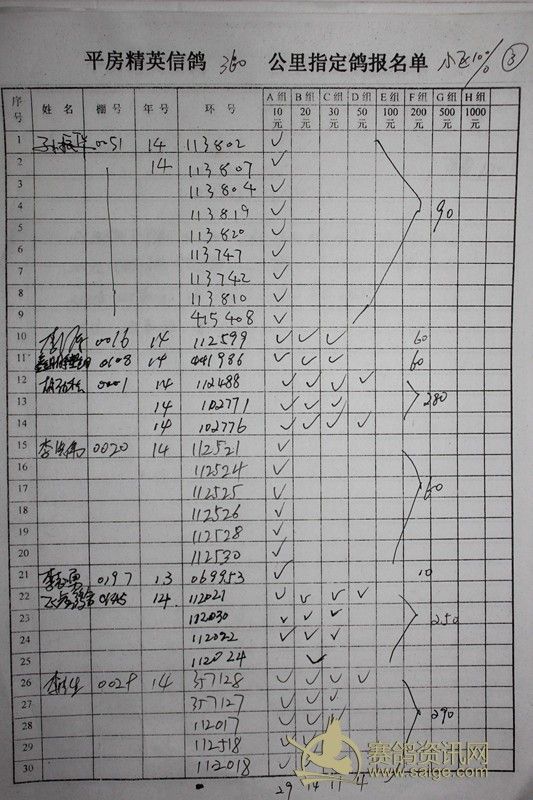 平房精英信鸽 360 公里指定鸽报名单 小飞10% ③
序号 姓名 棚号 年号 环号 A组10元 B组20元 C组30元 D组50元 E组100元 F组200元 G组500元 H组1000元
1 0051 14 113802 ✓
2 14 113807 ✓
3 113804 ✓
4 113819 ✓ 90
5 113820 ✓
6 113747 ✓
7 113742 ✓
8 113810 ✓
9 415408 ✓
10 0016 14 112599 ✓ ✓ ✓ 60
11 0108 14 441986 ✓ ✓ ✓ 60
12 0001 14 112488 ✓ ✓ ✓ ✓
13 14 102771 ✓ ✓ ✓ 280
14 14 102776 ✓ ✓ ✓ ✓
15 0020 14 112521 ✓
16 112524 ✓
17 112525 ✓ 60
18 112526 ✓
19 112528 ✓
20 112530 ✓
21 0197 13 069953 ✓ 10
22 14 112021 ✓ ✓ ✓ ✓
23 112030 ✓ ✓ ✓ 250
24 112022 ✓ ✓ ✓
25 112024 ✓
26 14 357128 ✓ ✓ ✓ ✓
27 357127 ✓ ✓ ✓
28 112017 ✓ ✓ ✓ 290
29 112518 ✓ ✓
30 112018 ✓
29 14 11 4
赛鸽资讯网
www.saige.com